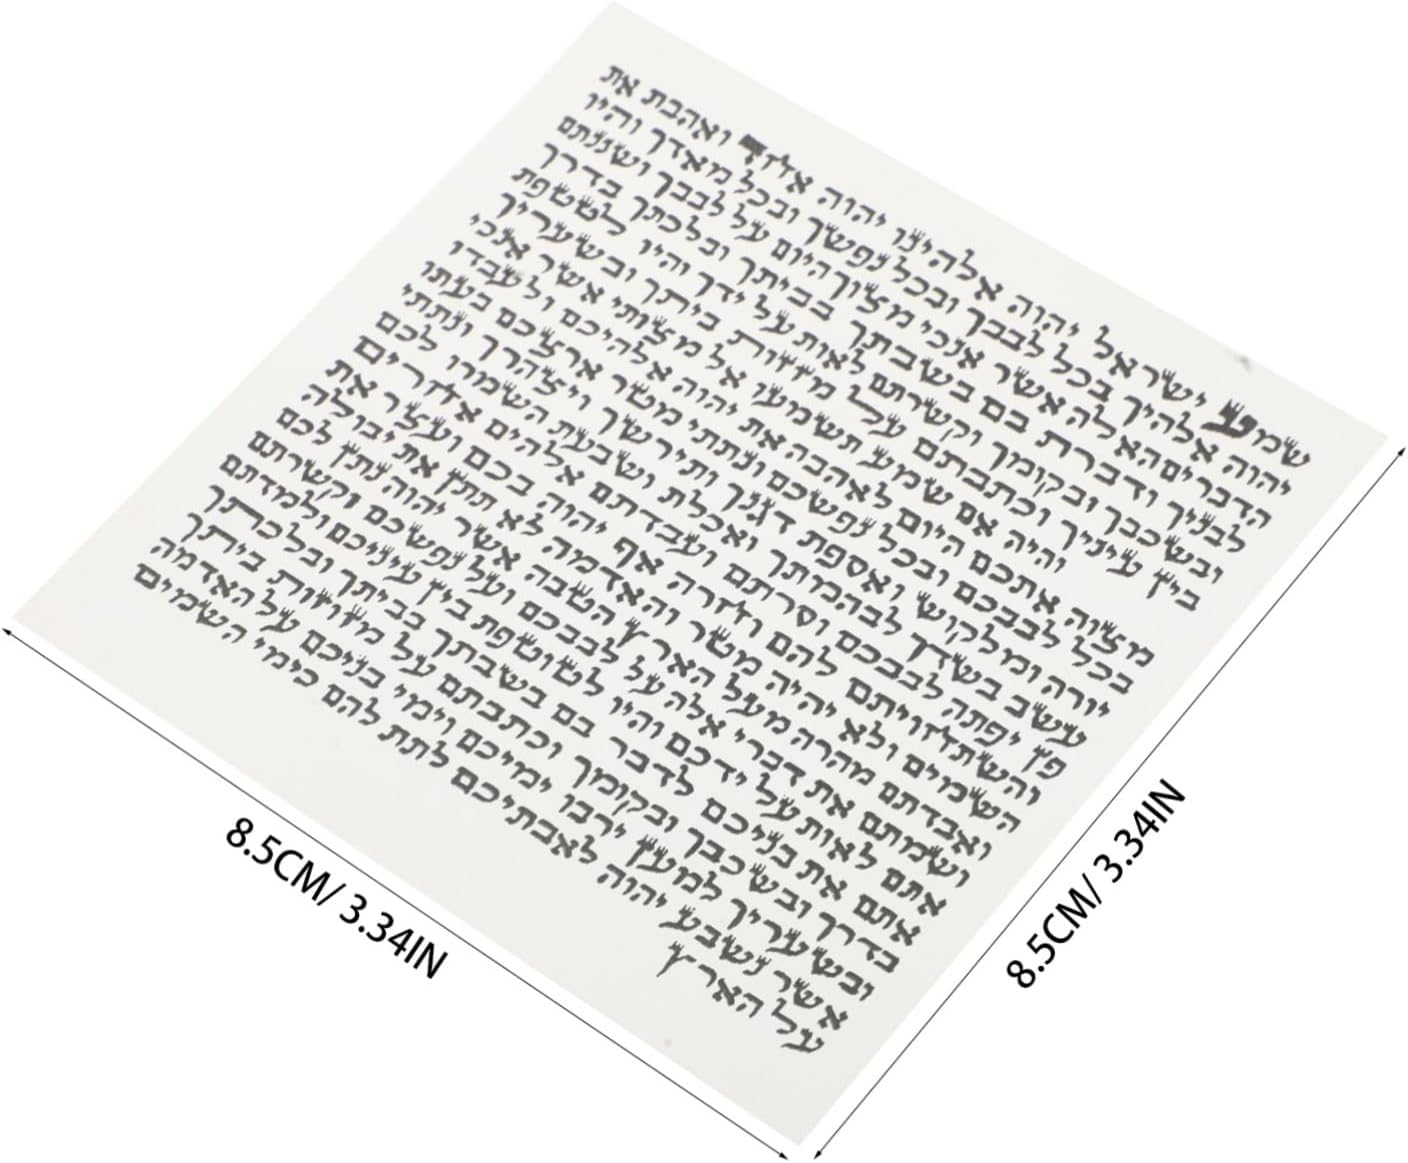 שמע ישראל יהוה אלהינו יהוה אחד ואהבת את
יהוה אלהיך בכל לבבך ובכל נפשך ובכל מאדך והיו
הדברים האלה אשר אנכי מצוך היום על לבבך ושננתם
לבניך ודברת בם בשבתך בביתך ובלכתך בדרך
ובשכבך ובקומך וקשרתם לאות על ידך והיו לטטפת
בין עיניך וכתבתם על מזזות ביתך ובשעריך
והיה אם שמע תשמעו אל מצותי אשר אנכי
מצוה אתכם היום לאהבה את יהוה אלהיכם ולעבדו
בכל לבבכם ובכל נפשכם ונתתי מטר ארצכם בעתו
יורה ומלקוש ואספת דגנך ותירשך ויצהרך ונתתי
עשב בשדך לבהמתך ואכלת ושבעת השמרו לכם
פן יפתה לבבכם וסרתם ועבדתם אלהים אחרים
והשתחויתם להם וחרה אף יהוה בכם ועצר את
השמים ולא יהיה מטר והאדמה לא תתן את יבולה
ואבדתם מהרה מעל הארץ הטבה אשר יהוה נתן לכם
ושמתם את דברי אלה על לבבכם ועל נפשכם וקשרתם
אתם לאות על ידכם והיו לטוטפת בין עיניכם ולמדתם
אתם את בניכם לדבר בם בשבתך בביתך ובלכתך
בדרך ובשכבך ובקומך וכתבתם על מזוזות ביתך
ובשעריך למען ירבו ימיכם וימי בניכם על האדמה
אשר נשבע יהוה לאבתיכם לתת להם כימי השמים
על הארץ
8.5CM/ 3.34IN
8.5CM/ 3.34IN